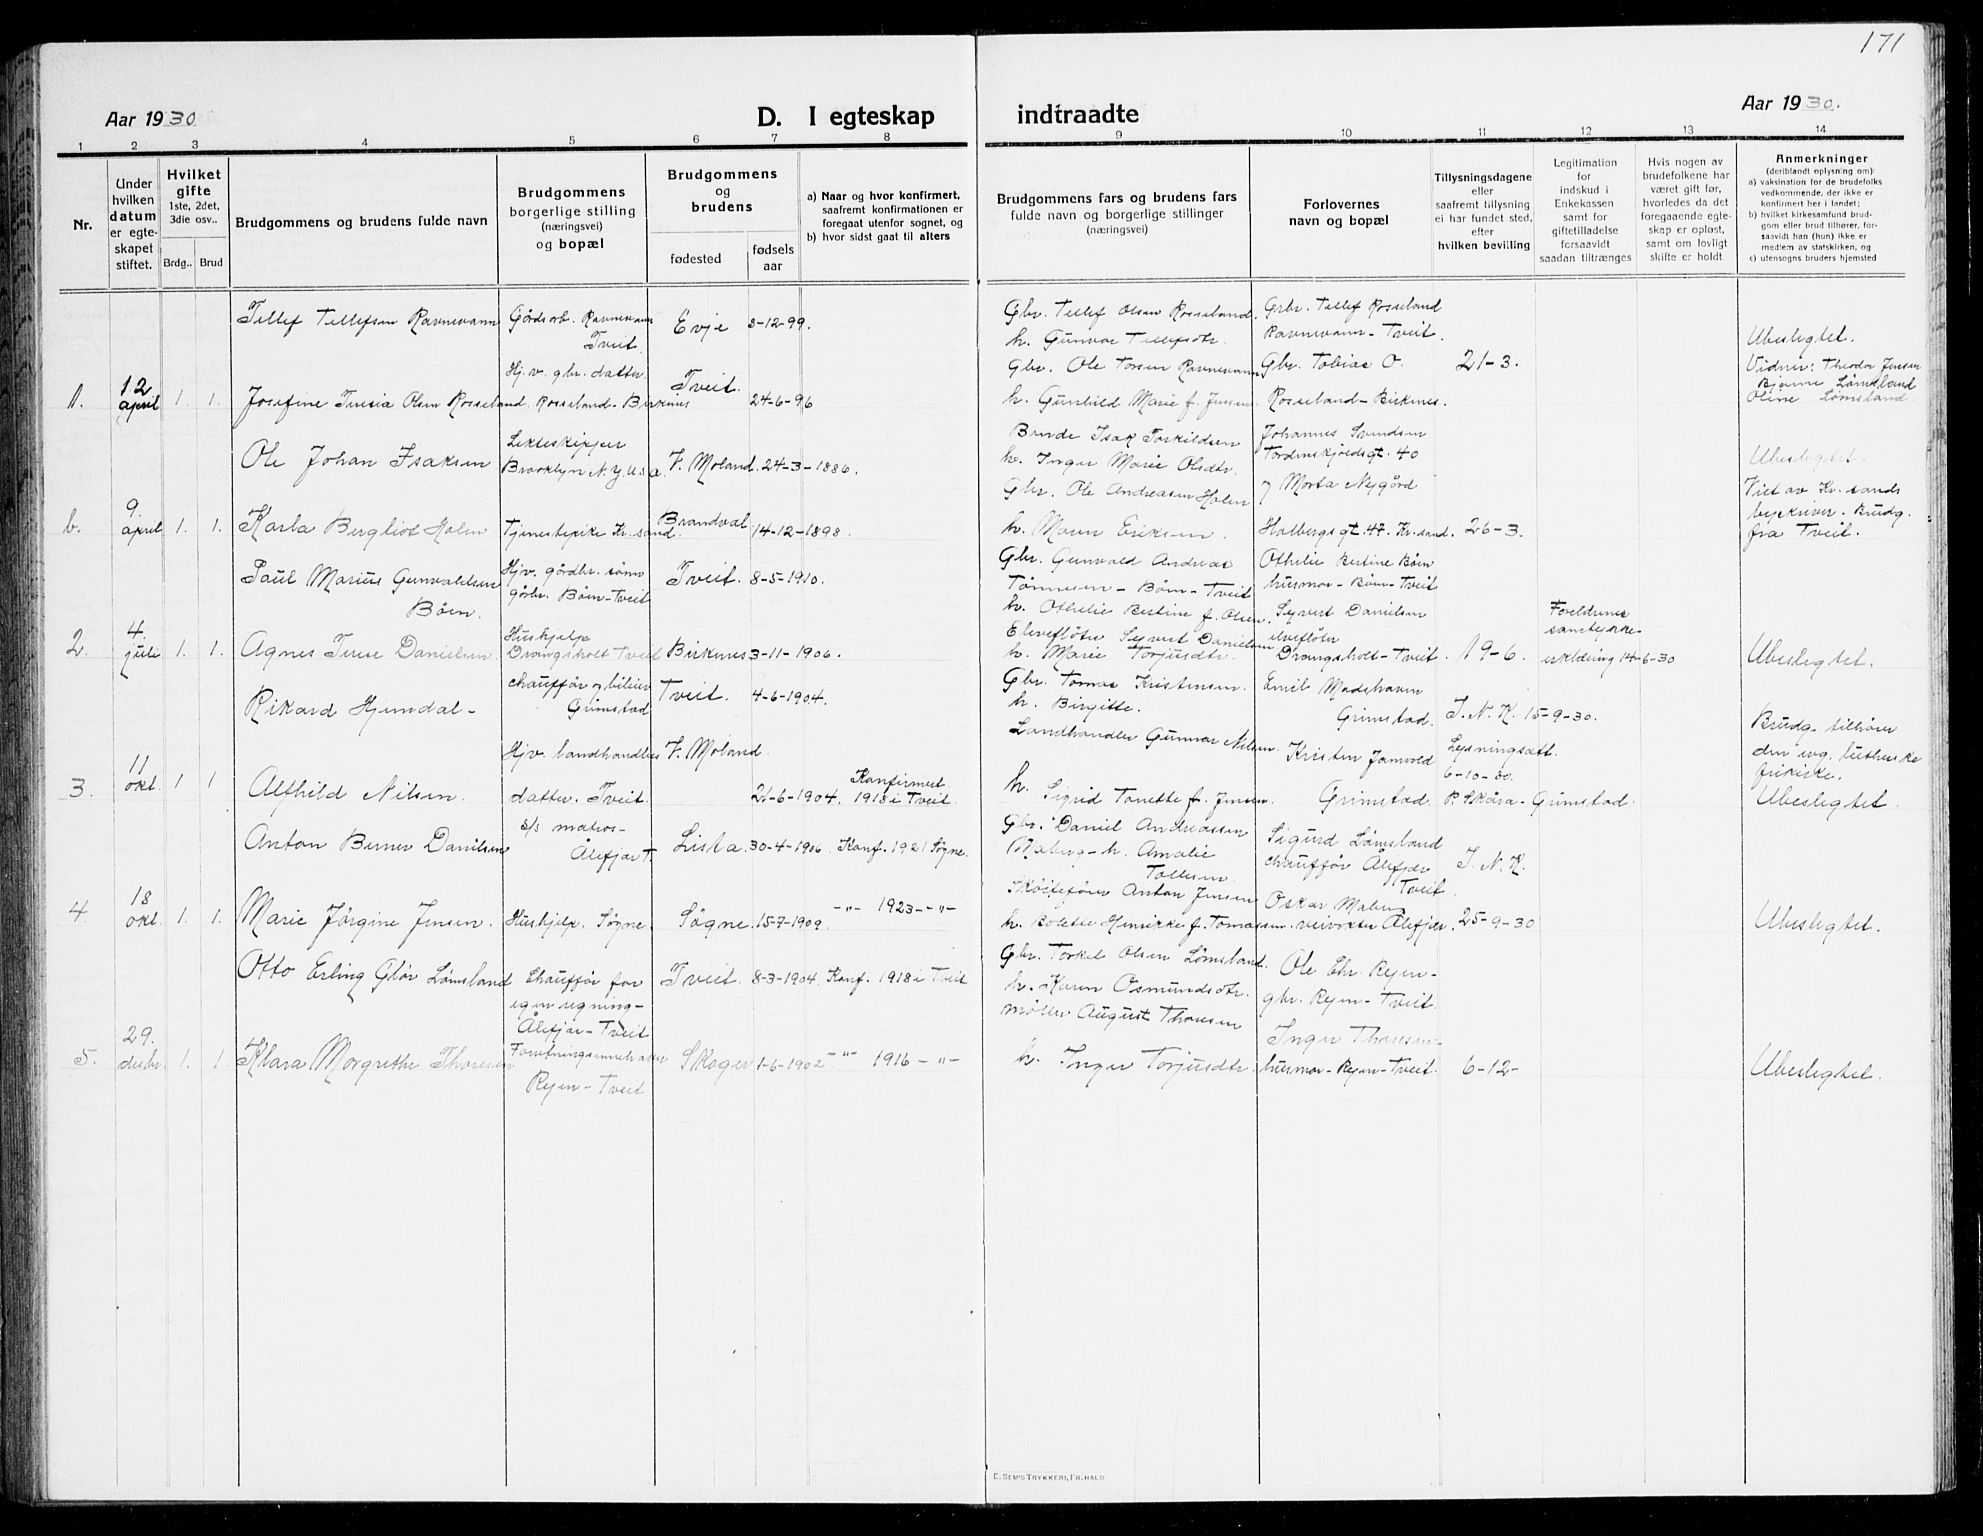 171
Aar 1930
D. I egteskap
indtraadte
Aar 1930.
1 2 3 4 5 6 7 8 9 10 11 12 13 14
Nr.
Under hvilken datum er egteskapet stiftet.
Hvilket gifte
1ste, 2det, 3die osv..
Brdg.. Brud
Brudgommens og brudens fulde navn
Brudgommens borgerlige stilling (næringsvei) og bopæl
Brudgommens og brudens
fødested
fødsels aar
a) Naar og hvor konfirmert, saafremt konfirmationen er foregaat utenfor sognet, og
b) hvor sidst gaat til alters
Brudgommens fars og brudens fars
fulde navn og borgerlige stillinger
(næringsvei)
Forlovernes
navn og bopæl
Tillysningsdagene
eller
saafremt tillysning
ei har fundet sted,
efter
hvilken bevilling
Legitimation
for
indskud i
Enkekassen
samt for
giftetilladelse
forsaavidt
saadan tiltrænges
Hvis nogen av
brudefolkene har
været gift før,
hvorledes da det
foregaaende egte-
skap er opløst,
samt om lovligt
skifte er holdt
Anmerkninger
(deriblandt oplysning om):
a) vaksination for de brudefolks vedkommende, der ikke er konfirmert her i landet;
b) hvilket kirkesamfund brudgom eller brud tilhører, forsaavidt han (hun) ikke er medlem av statskirken, og
c) utensogns bruders hjemsted
Tellef Tellefsen Ravnevann
Gårdsarb. Ravnevann
Tveit.
Evje
3-12-99.
Gbr. Tellef Olsen Rosseland.
h. Gunvor Tellefsdtr.
Gbr. Tellef Rosseland
Ravnevann-Tveit.
Ubeslegtet.
1. 12 april 1. 1.
Josefine Tresia Olsen Rosseland.
Hj. v. gbr. datter.
Rosseland-Birkenes
Tveit.
24-6-96
Gbr. Ole Torsen Ravnevann
h. Gunhild Marie f. Jensen.
Gbr. Tobias O.
Rosseland-Birkenes.
21-3.
Vidner: Theodor Jensen
Bjarne Lømsland
Oline Lømsland.
Ole Johan Isaksen
Lekteskipper
Brooklyn N.Y. U.S.a.
V. Moland.
24-3-1886.
Brude Isak Torkildsen
h. Inger Marie Olsdtr.
Johannes Svendsen
Tordenskjoldsgt. 40
Ubeslegtet.
b. 9. april 1. 1.
Karla Bergliot Holen
Tjenestepike Kr. sand.
Brandval.
14-12-1898.
Gbr. Ole Andreasen Holen
h. Maren Eriksen.
og Marta Nygård
Holbergsgt. 47. Kr. sand.
26-3.
Viet av Kr. sands
byskriver. Brudg.
fra Tveit.
Paul Marius Gunvaldsen
Bøen.
Hjv. gårdbr. sønn
gårbr. Bøen-Tveit
Tveit.
8-5-1910.
Gbr. Gunvald Andreas
Tønnesen-Bøen-Tveit
h. Othelie Bertine f. Olsen.
Othelie Bertine Bøen
husmor-Bøen-Tveit
2. 4. juli 1. 1.
Agnes Terese Danielsen
Hushjelp
Drangsholt Tveit
Birkenes
3-11-1906.
Elvefløter Syvert Danielsen
h. Marie Torjusdtr.
Syvert Danielsen
elvefløter
Drangsholt-Tveit.
19-6.
Foreldrenes
samtykke-
erklæring 14-6-30
Ubeslegtet.
Rikard Hjemdal-
chauffør og bileier
Grimstad
Tveit.
4-6-1904.
Gbr. Tomas Kristensen.
h. Birgitte.
Emil Madshaven
Grimstad.
I. N. K. 15-9-30.
Brudg. tilhører
den evg. lutherske
frikirke.
3. 11 okt. 1 1
Alfhild Nilsen.
Hjv. landhandlers
datter. Tveit.
V. Moland.
21-6-1904.
Konfirmert
1918 i Tveit.
Landhandler Gunnar Nilsen.
h. Sigrid Tonette f. Jensen.
Kristen Jomvold
Grimstad.
Lysningsatt.
6-10-30.
P. Skåra-Grimstad.
Ubeslegtet.
Anton Berner Danielsen
s/s matros-
Ålefjær T.
Lista.
30-4-1906.
Konf. 1921 Søgne.
Gbr. Daniel Andreassen
Maberg-h. Amalie
Tollesen.
Sigurd Lømsland
chauffør Ålefjær
Tveit.
I. N. K.
4. 18 okt. 1. 1.
Marie Jørgine Jensen.
Hushjelp. Søgne.
Søgne.
15-7-1909.
-"- 1923-"-
Skøitefører Anton Jensen
h. Bolette Henrikke f. Tomassen.
Oskar Moben
veivokter Ålefjær.
25-9-30
Ubeslegtet.
Otto Erling Glør Lømsland
Chauffør for
egen regning-
Ålefjær-Tveit
Tveit.
8-3-1904.
Konf. 1918 i Tveit
Gbr. Torkel Olsen Lømsland.
h. Karen Osmundsdtr.
Ole Chr. Ryen-
gbr. Ryen-Tveit.
5. 29. desbr. 1. 1.
Klara Margrethe Thoresen
Forretningsinnehaver
Ryen-Tveit
Skoger
1-6-1902
-"- 1916-"-
møller August Thoresen
h. Inger Torjusdtr.
Inger Thoresen-
husmor-Ryen-Tveit.
6-12-
Ubeslegtet.
E. SEM'S TRYKKERI, FR.HALD